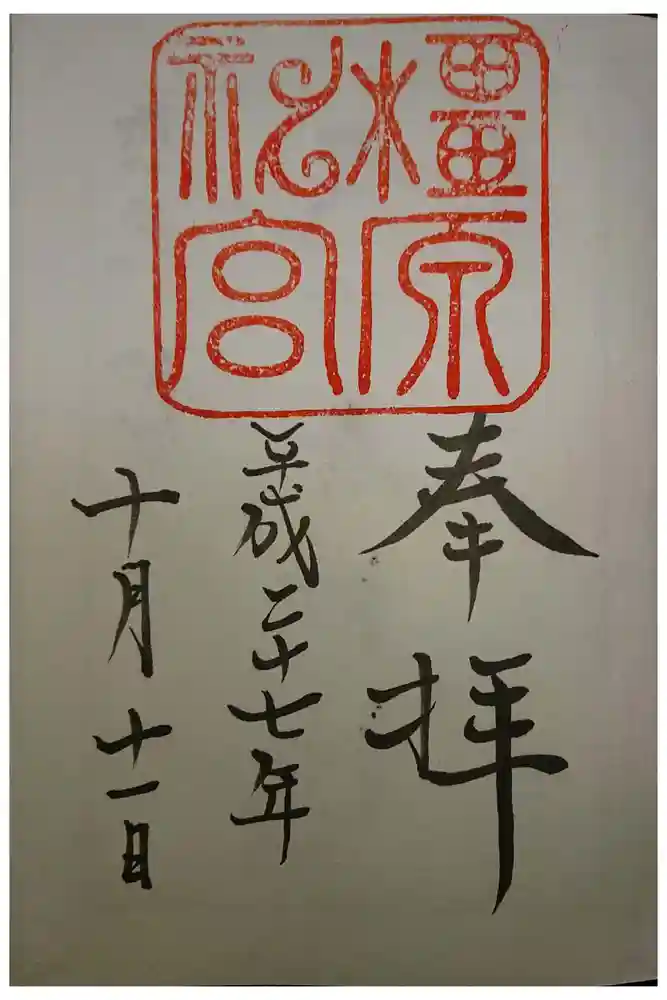 橿原神宮
奉拝
平成二十七年
十月十一日